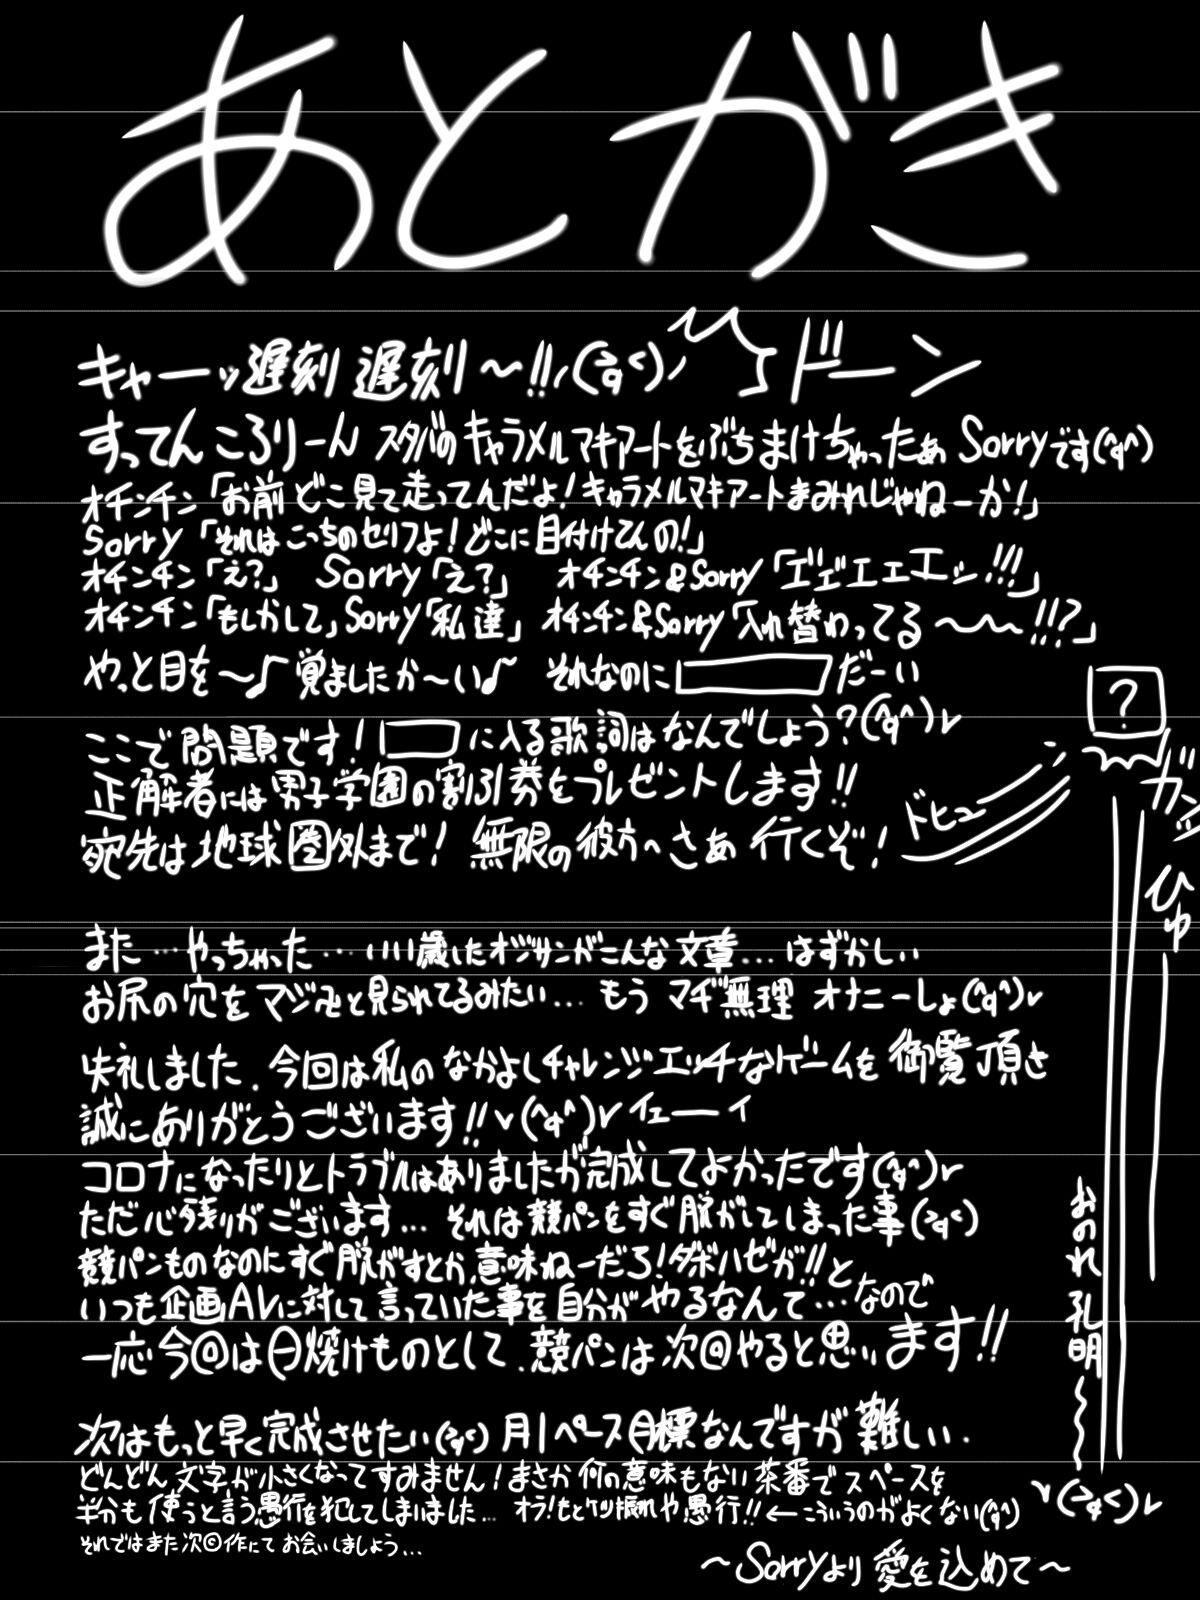 あとがき
キャーッ遅刻遅刻〜!!
ドーン
すってんころりーん スタバのキャラメルマキアートをぶちまけちゃったぁ Sorryです(^q^)
オチンチン「お前どこ見て走ってんだよ!キャラメルマキアートまみれじゃねーか!」
Sorry「それはこっちのセリフよ!どこに目付けてんの!」
オチンチン「え?」 Sorry「え?」 オチンチン&Sorry「エ゛エ゛エェエッ!!!」
オチンチン「もしかして」Sorry「私達」 オチンチン&Sorry「入れ替わってる〜〜!!?」
やっと目を〜♪覚ましたか〜い♪ それなのに だーい
ここで問題です! に入る歌詞はなんでしょう?(^q^)v
正解者には男子学園の割引券をプレゼントします!!
宛先は地球圏外まで! 無限の彼方へさぁ行くぞ!
ドヒュー
?
ガンッ
ひゅ
また…やっちゃった… いい歳したオジサンがこんな文章… はずかしい
お尻の穴をマジマジと見られてるみたい… もうマヂ無理 オナニーしょ(^q^)v
失礼しました. 今回は私のなかよしチャレンジエッチなゲームを御覧頂き
誠にありがとうございます!!v(^q^)vイェーイ
コロナになったりとトラブルはありましたが完成してよかったです(^q^)v
ただ心残りがございます… それは競パンをすぐ脱がしてしまった事(>q<)
競パンものなのにすぐ脱がすとか意味ねーだろ!ダボハゼが!!と
いつも企画AVに対して言っていた事を自分がやるなんて…なので
一応今回は日焼けものとして.競パンは次回やると思います!!
次はもっと早く完成させたい(>q<) 月1ペース目標なんですが難しい.
どんどん文字が小さくなってすみません!まさか何の意味もない茶番でスペースを
半分も使うと言う愚行を犯してしまいました… オラ!もとケツ振れや愚行!!←こういうのがよくない(^q^)
それではまた次回作にてお会いしましょう…
おのれ孔明〜〜
v(>q<)v
〜Sorryより愛を込めて〜